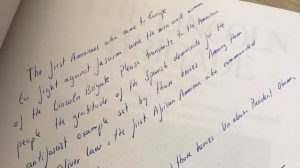 The first Americans who came to Europe
to fight against fascism were the men and women
of the Lincoln Brigade. Please transmit to the American
people the gratitude of the Spanish democrats for the
antifascist example set by these heroes. Among them
Oliver Law, the first African American who commanded
these heroes
President Obama